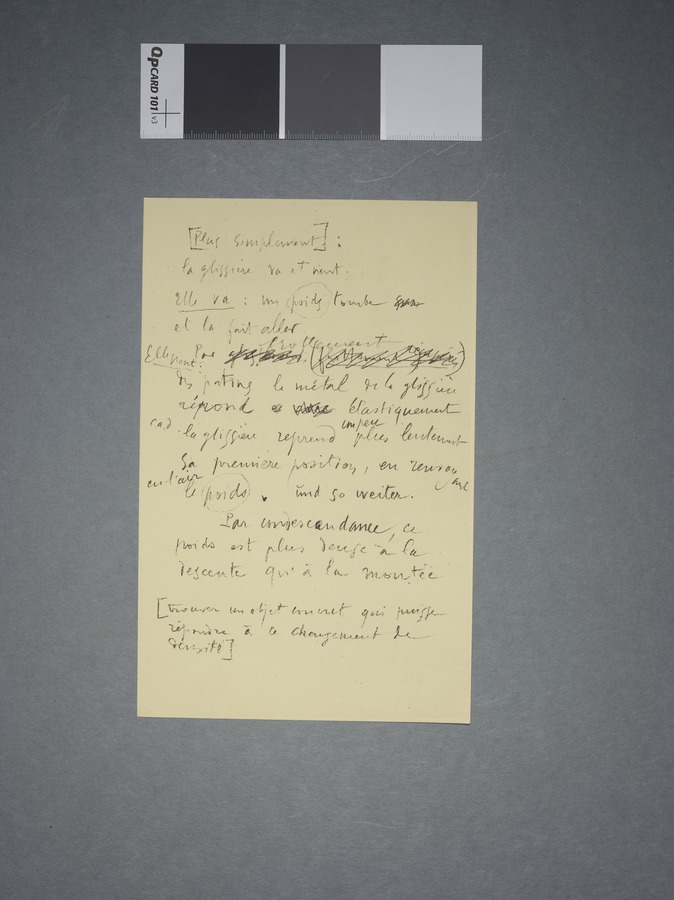 QPCARD 101 v3
[Plus simplement] :
la glissière va et vient.
Elle va : un poids tombe
et la fait aller
Elle vient : Par frottement
des patins le métal de la glissière
répond élastiquement
c.a.d. la glissière reprend un peu plus lentement
sa première position, en renvoyant
en l'air le poids. und so weiter.
Par condescendance, ce
poids est plus dense à la
descente qu'à la montée
[trouver un objet concret qui puisse
répondre à ce changement de
densité]